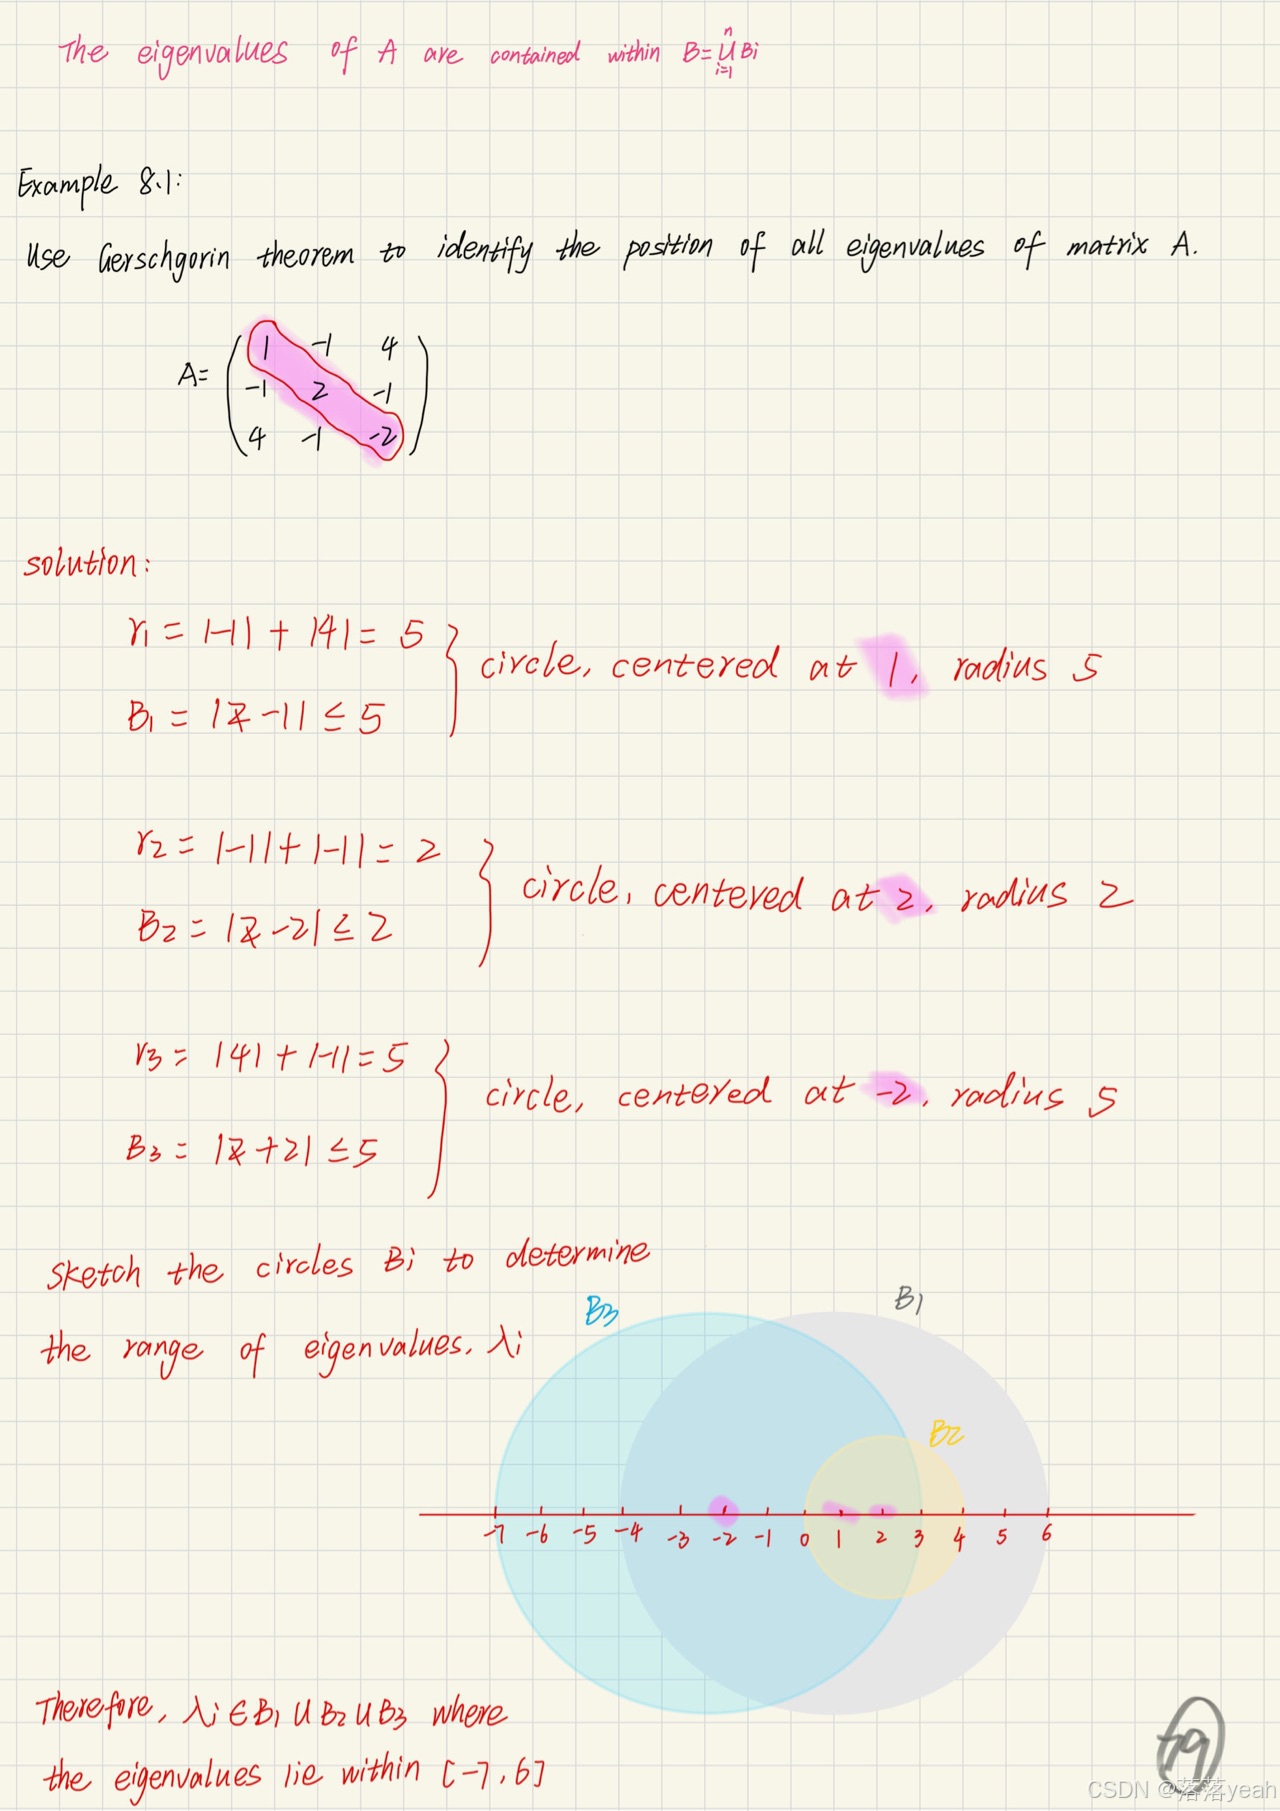 The eigenvalues of A are contained within B=⋃ⁿᵢ₌₁ Bi
Example 8.1:
Use Gerschgorin theorem to identify the position of all eigenvalues of matrix A.
A= ( 1 -1 4
-1 2 -1
4 -1 -2 )
solution:
r1 = |-1| + |4| = 5
B1 = |z-1| ≤ 5
circle, centered at 1, radius 5
r2 = |-1| + |-1| = 2
B2 = |z-2| ≤ 2
circle, centered at 2, radius 2
r3 = |4| + |-1| = 5
B3 = |z+2| ≤ 5
circle, centered at -2, radius 5
Sketch the circles Bi to determine
the range of eigenvalues, λi
B3
B1
B2
-7 -6 -5 -4 -3 -2 -1 0 1 2 3 4 5 6
Therefore, λi ∈ B1 ∪ B2 ∪ B3 where
the eigenvalues lie within [-7, 6]
CSDN @落落yeah